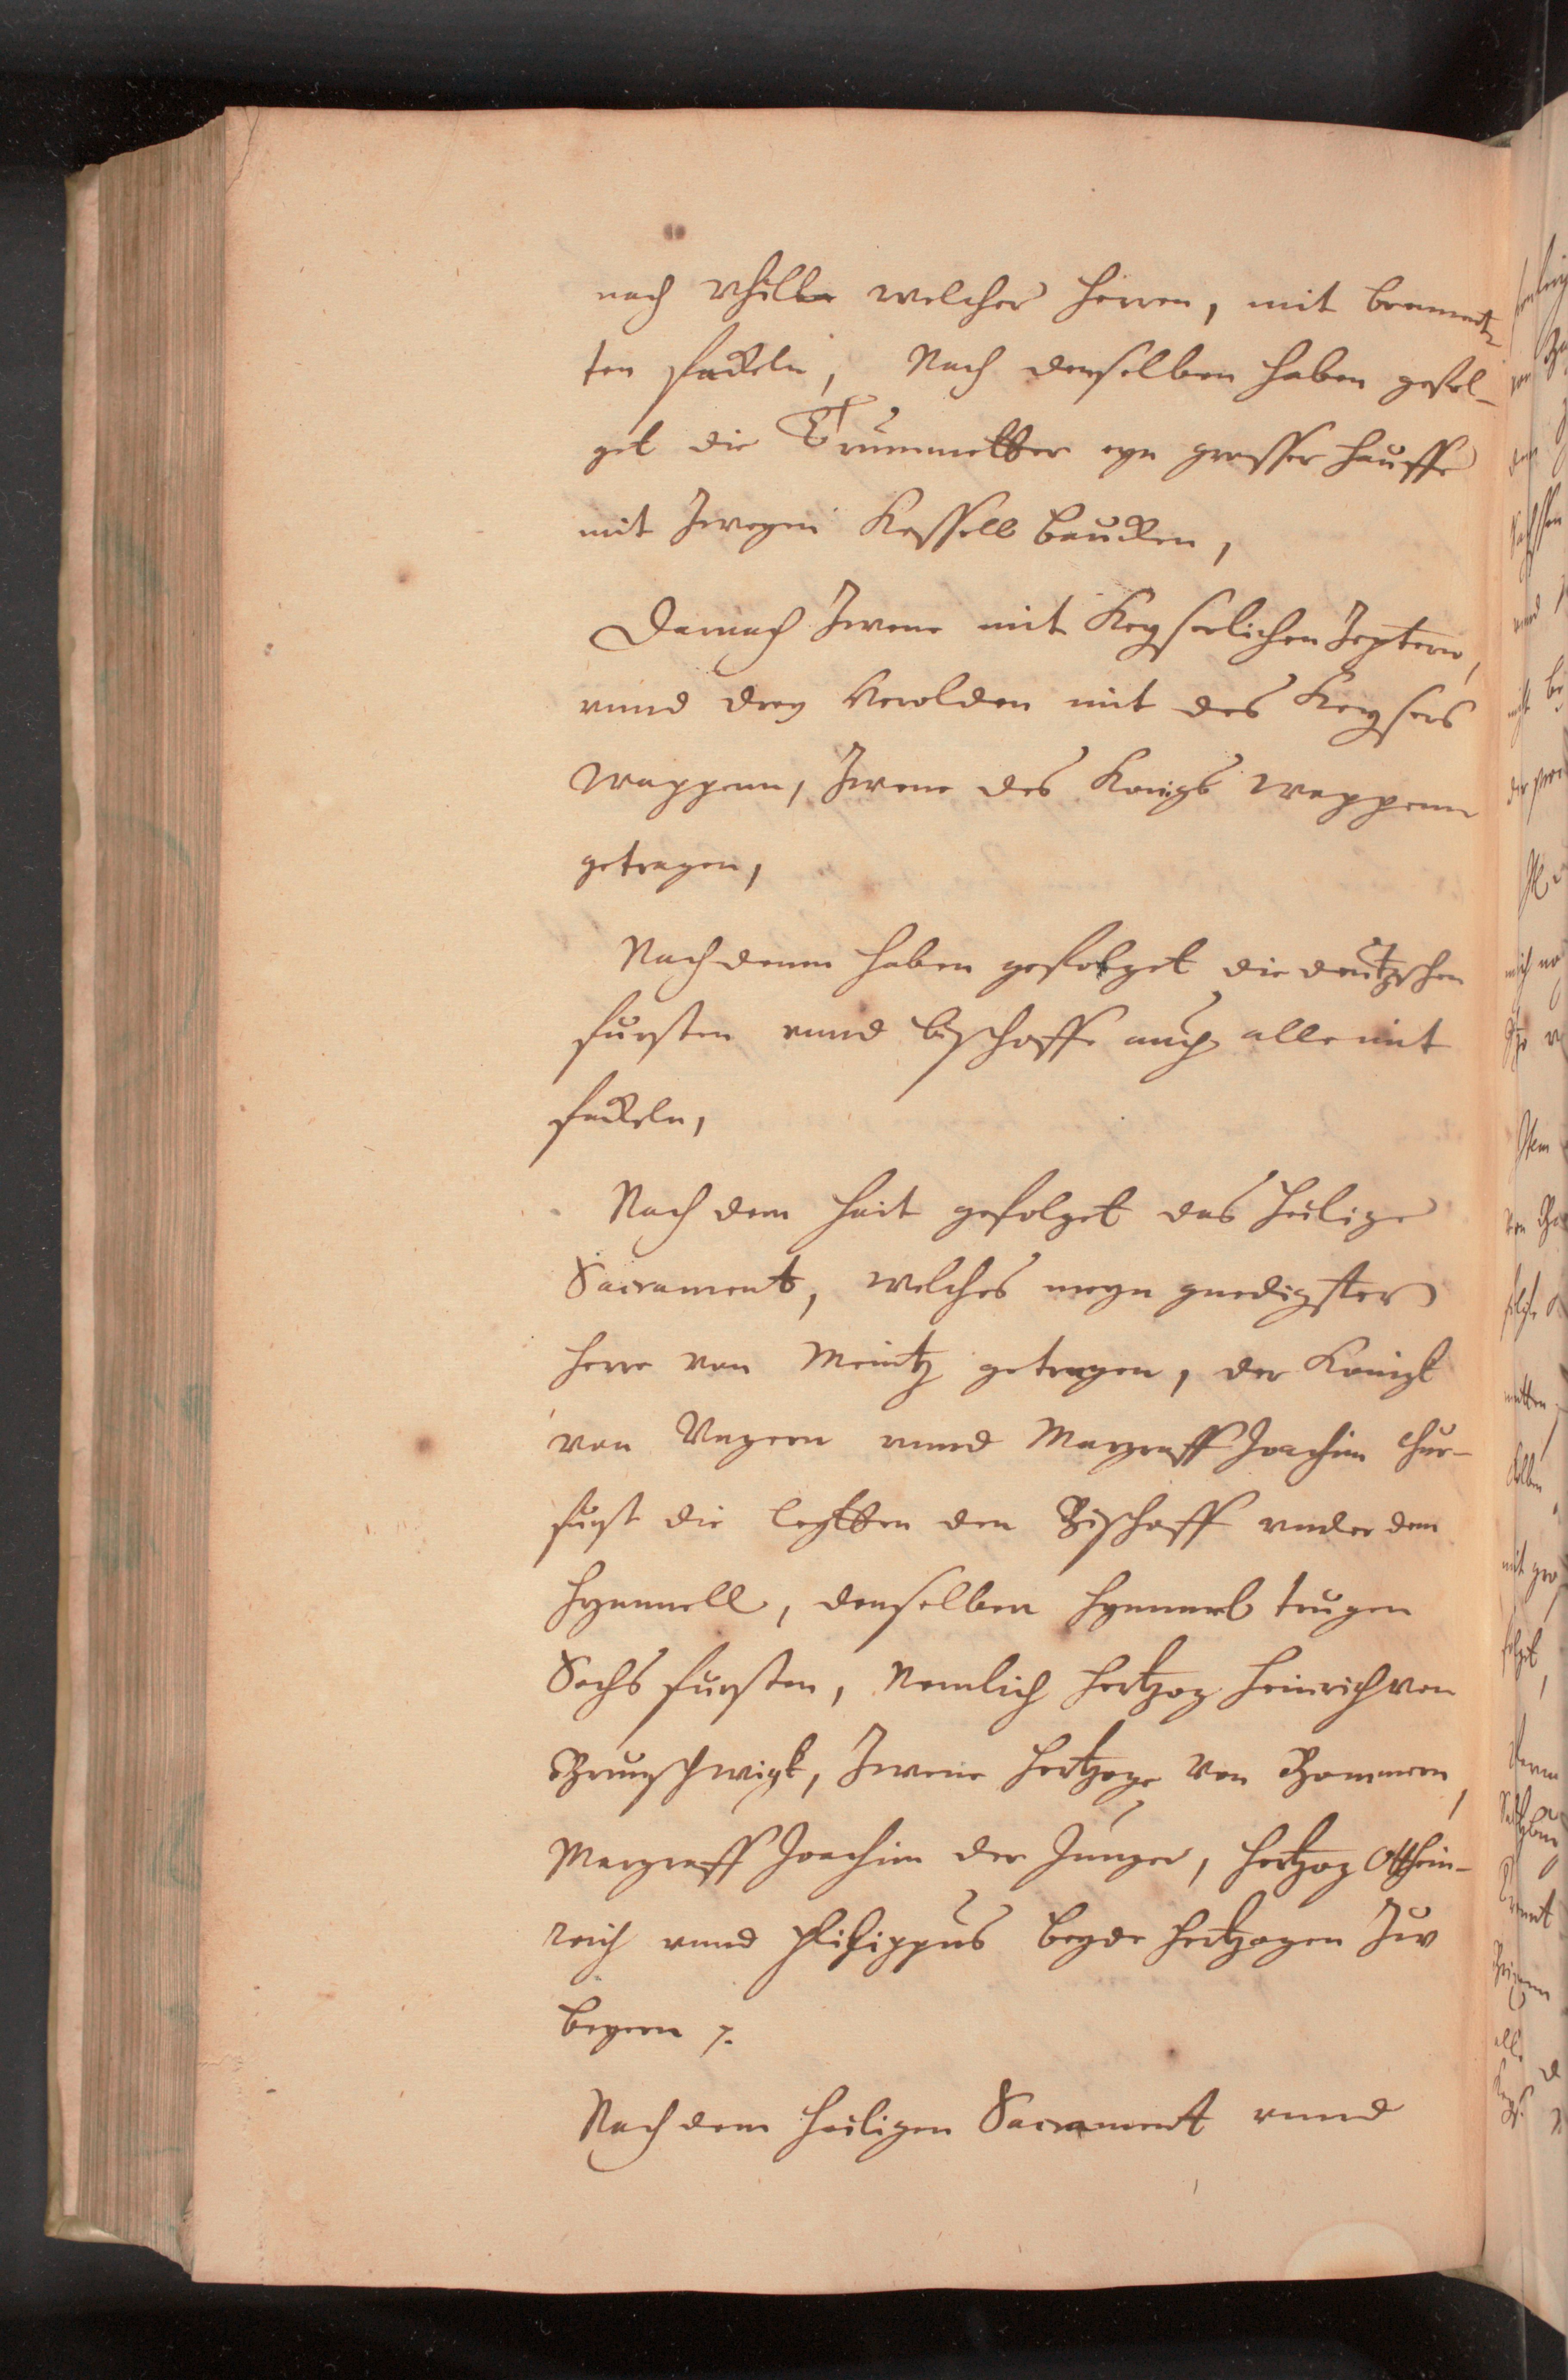 nach vhill welscher herren, mit brennet-
ten fackeln, Nach denselben haben gefol-
get die Trummetter eyn grosser hauffe
mit zweyen Kessell baucken,
Darnach zwene mit Keyserlichen Zeptern,
vnnd drey Herolden mit des Keysers
Wappenn, zwene des Konigs wappenn
getragen,
Nach denn haben gefolget die deutzschen
fursten vnnd bischoffe auch alle mit
fackeln,
Nach dem hait gefolget das heilige
Sacrament, welches meyn gnedigster
herr von Meintz getragen, der Konigk
von Vngern vnnd Margraff Joachim Chur-
furst die leytten den Bischoff vnder dem
hymmell, denselben hymmel trugen
Sechs fursten, Nemlich hertzog Heinrich von
Brunschwigk, Zwene hertzoge von Pommern,
Margraff Joachim der Junger, hertzog Otthein-
reich vnnd Philippus beyde hertzogen zw
beyern /.
Nach dem heiligen Sacrament vnnd